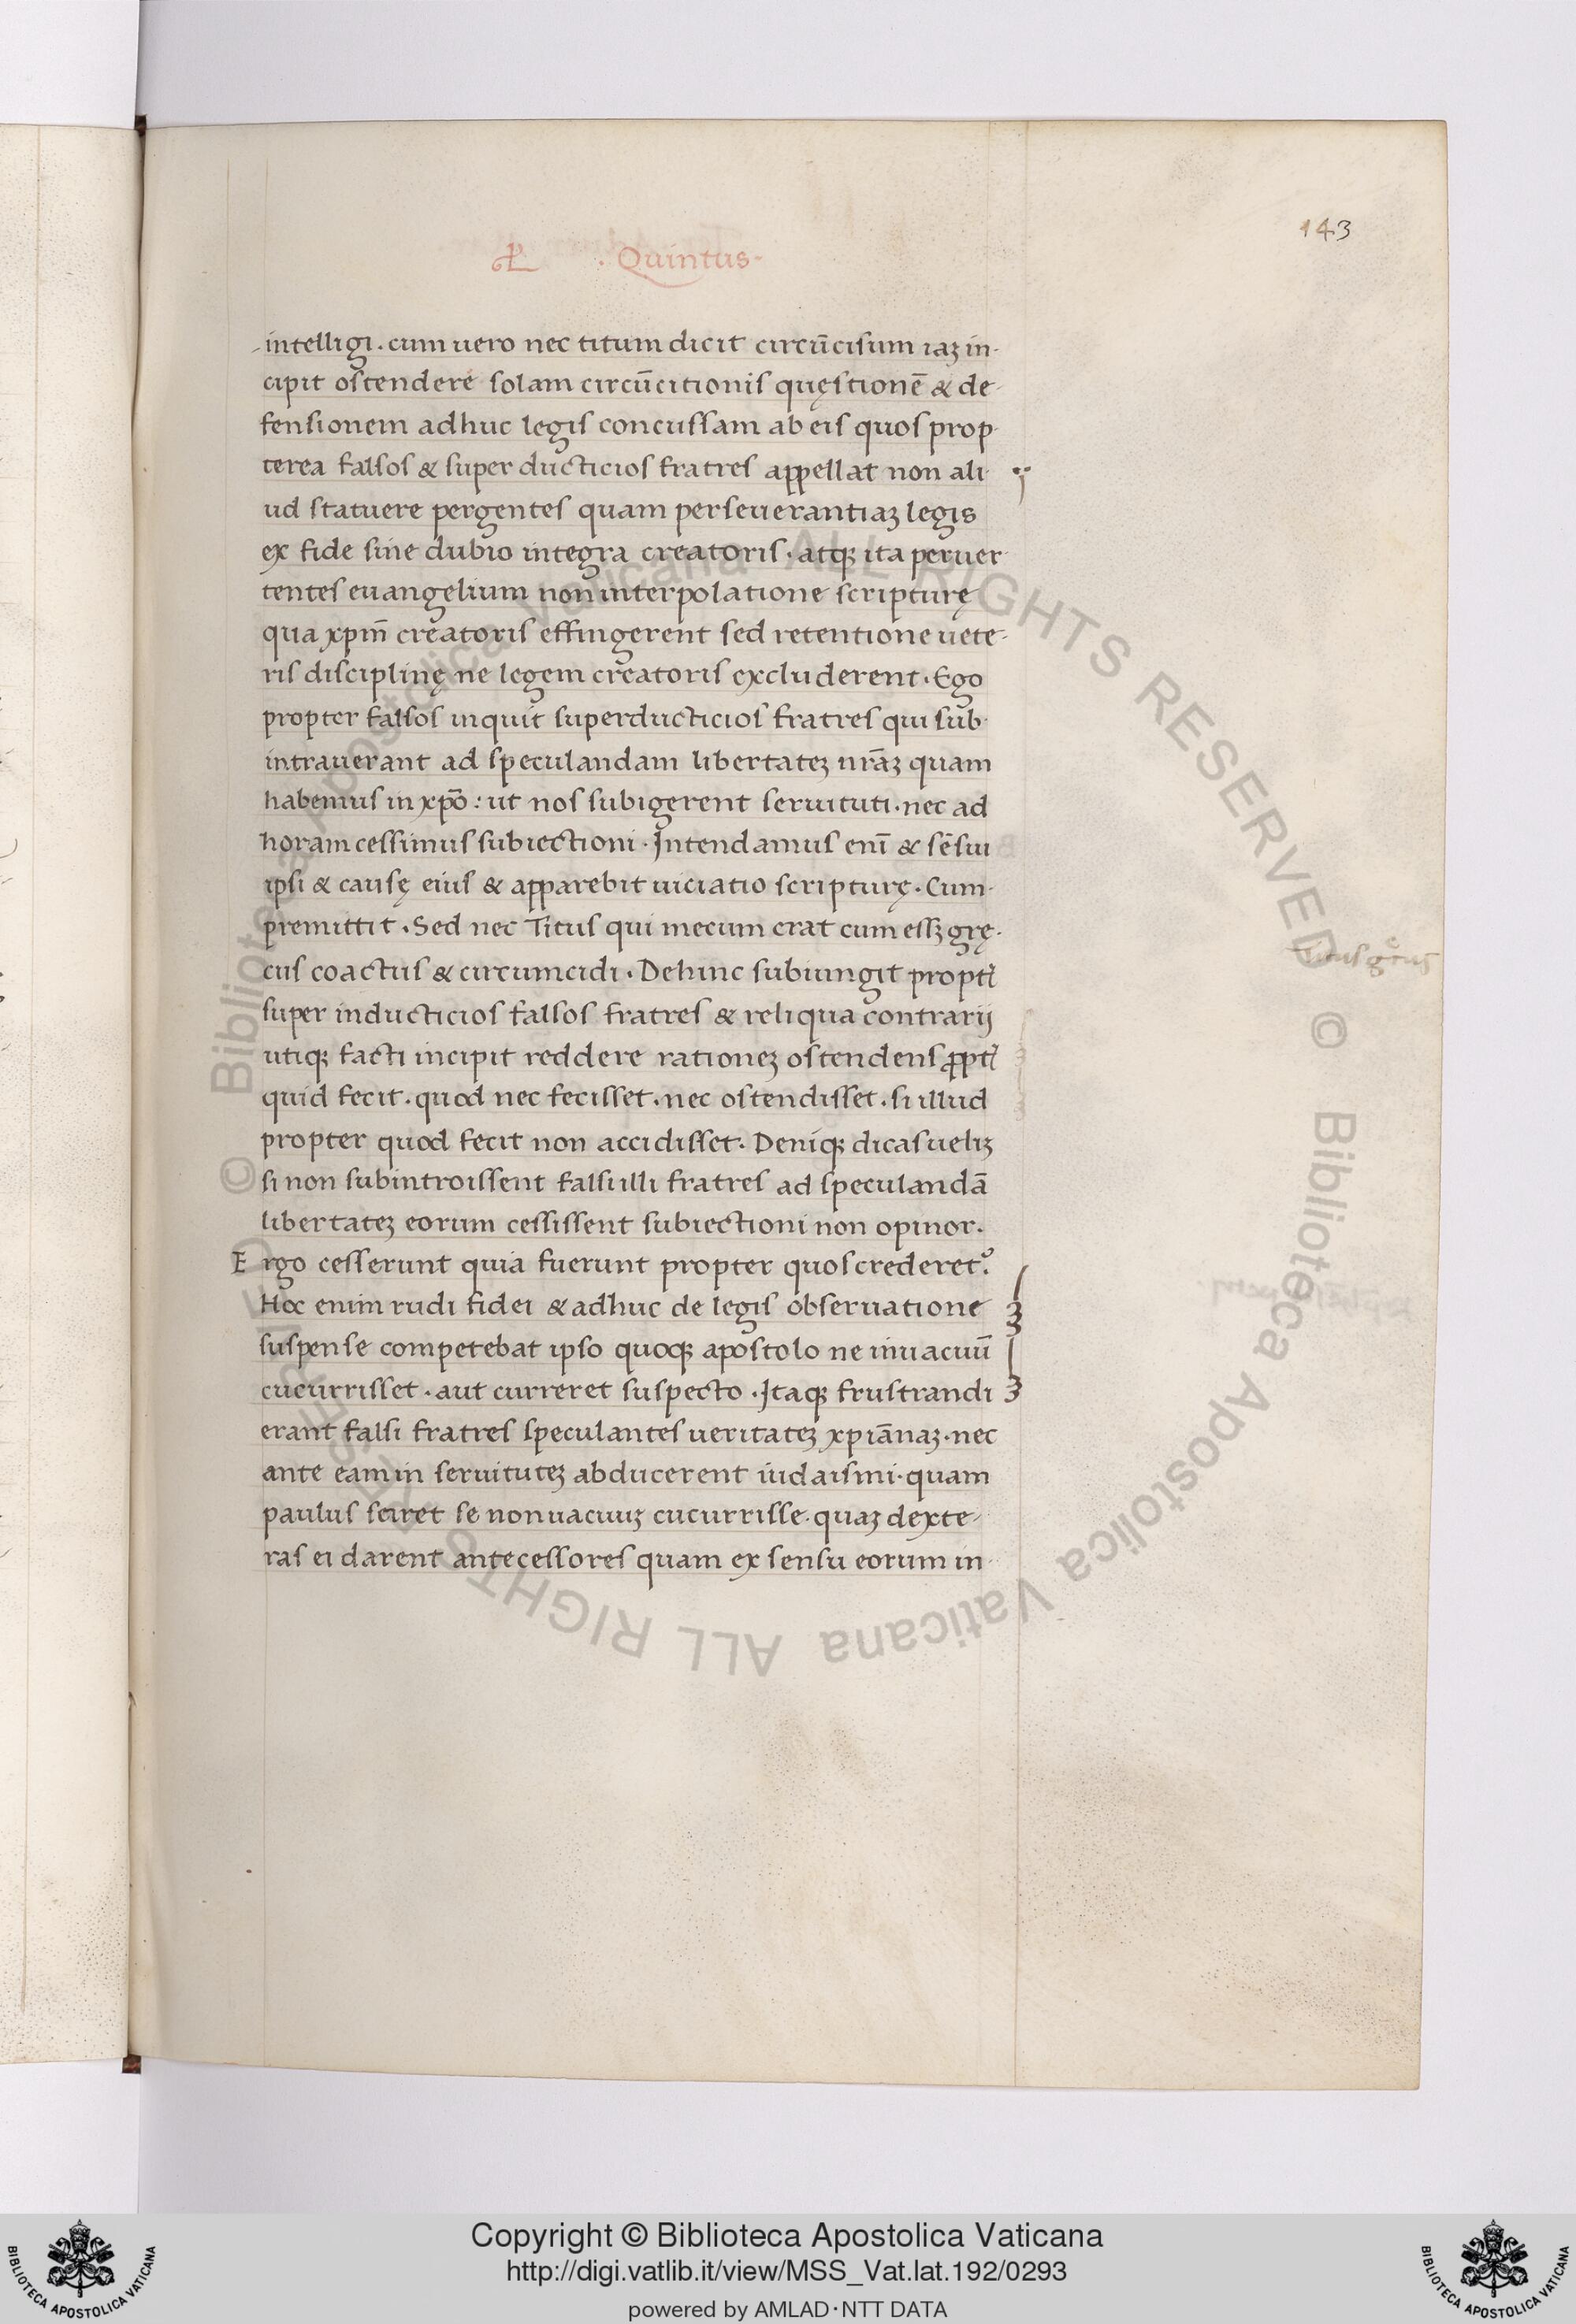 143
. Quintus.
intelligi. cum uero nec titum dicit circūcisum iaꝫ in-
cipit ostendere solam circūcitionis quęstionē & de-
fensionem adhuc legis concussam ab eis quos prop-
terea falsos & super ducticios fratres appellat non ali-
ud statuere pergentes quam perseuerantiaꝫ legis
ex fide sine dubio integra creatoris. atqꝫ ita peruer
tentes euangelium non interpolatione scripturę
qua xpm̄ creatoris effingerent sed retentione uete-
ris disciplinę ne legem creatoris excluderent. Ego
propter falsos inquit superducticios fratres qui sub-
intrauerant ad speculandam libertateꝫ nr̄aꝫ quam
habemus in xpō: ut nos subigerent seruituti. nec ad
horam cessimus subiectioni. Intendamus enī & sēsui
ipsi & causę eius & apparebit uiciatio scripturę. Cum-
premittit. Sed nec Titus qui mecum erat cum essꝫ grę-
cus coactus & circumcidi. Dehinc subiungit propt̄
super inducticios falsos fratres & reliqua contrarij
utiqꝫ facti incipit reddere rationeꝫ ostendens ꝓpt̄
quid fecit. quod nec fecisset. nec ostendisset. si illud
propter quod fecit non accidisset. Deniqꝫ dicas ueliꝫ
si non subintroissent falsi illi fratres ad speculandā
libertateꝫ eorum cessissent subiectioni non opinor.
Ergo cesserunt quia fuerunt propter quos crederet᷒.
Hoc enim rudi fidei & adhuc de legis obseruatione
suspense competebat ipso quoqꝫ apostolo ne inuacuū
cucurrisset. aut curreret suspecto. Itaqꝫ frustrandi
erant falsi fratres speculantes ueritateꝫ xpiānaꝫ. nec
ante eam in seruituteꝫ abducerent iudaismi. quam
paulus sciret se non uacuuꝫ cucurrisse. quaꝫ dexte-
ras ei darent antecessores quam ex sensu eorum in-
Titus grecus
© Biblioteca Apostolica Vaticana ALL RIGHTS RESERVED © Biblioteca Apostolica Vaticana ALL RIGHTS RESERVED
Copyright © Biblioteca Apostolica Vaticana
http://digi.vatlib.it/view/MSS_Vat.lat.192/0293
powered by AMLAD·NTT DATA
BIBLIOTECA APOSTOLICA VATICANA
BIBLIOTECA APOSTOLICA VATICANA